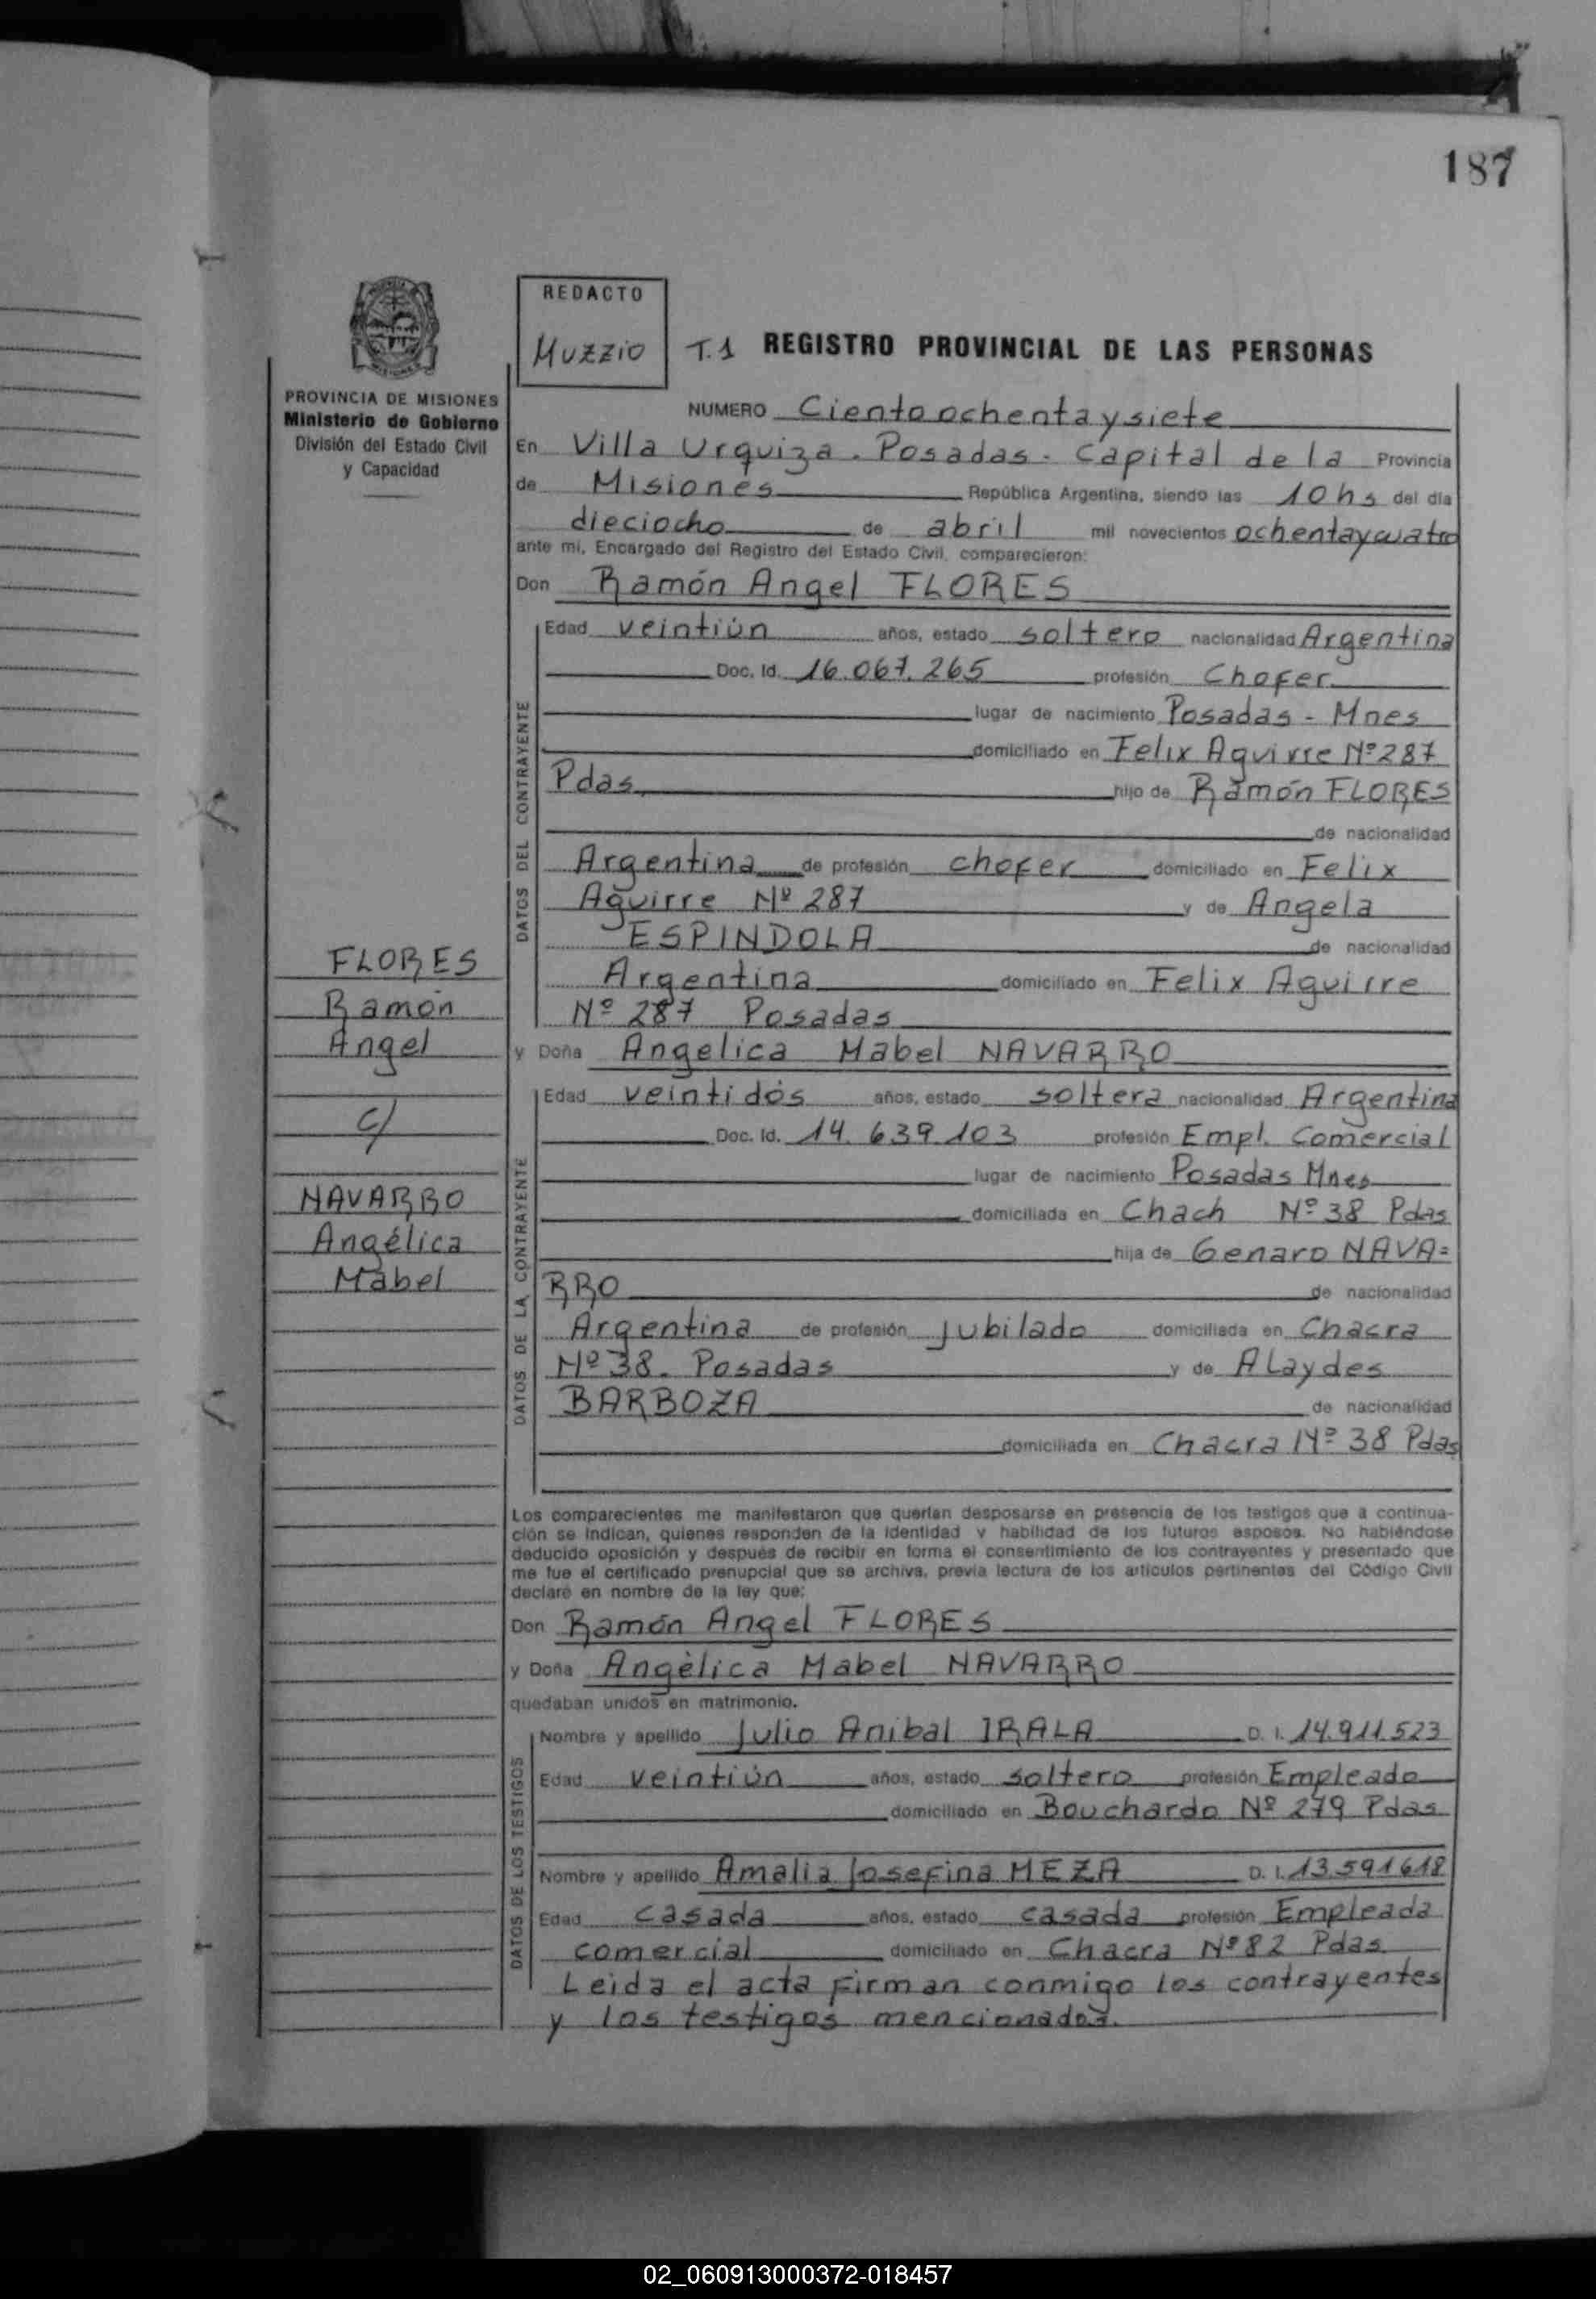 187
REDACTO
Muzzio
T.1 REGISTRO PROVINCIAL DE LAS PERSONAS
PROVINCIA DE MISIONES
Ministerio de Gobierno
División del Estado Civil
y Capacidad
NUMERO Ciento ochenta y siete
En Villa Urquiza. Posadas - Capital de la Provincia
de Misiones República Argentina, siendo las 10 hs del día
dieciocho de abril mil novecientos ochentaycuatro
ante mi, Encargado del Registro del Estado Civil, comparecieron:
Don Ramón Angel FLORES
DATOS DEL CONTRAYENTE
Edad veintiún años, estado soltero nacionalidad Argentina
Doc. Id. 16.067.265 profesión Chofer
lugar de nacimiento Posadas - Mnes
domiciliado en Felix Aguirre Nº 287
Pdas. hijo de Ramón FLORES
de nacionalidad
Argentina de profesión chofer domiciliado en Felix
Aguirre Nº 287 y de Angela
ESPINDOLA de nacionalidad
Argentina domiciliado en Felix Aguirre
Nº 287 Posadas
FLORES
Ramón
Angel
c/
NAVARRO
Angélica
Mabel
y Doña Angelica Mabel NAVARRO
DATOS DE LA CONTRAYENTE
Edad veintidós años, estado soltera nacionalidad Argentina
Doc. Id. 14.639.103 profesión Empl. Comercial
lugar de nacimiento Posadas Mnes
domiciliada en Chach Nº 38 Pdas
hija de Genaro NAVA=
RRO de nacionalidad
Argentina de profesión jubilado domiciliada en Chacra
Nº 38. Posadas y de ALaydes
BARBOZA de nacionalidad
domiciliada en Chacra Nº 38 Pdas
Los comparecientes me manifestaron que querían desposarse en presencia de los testigos que a continua-
ción se indican, quienes responden de la identidad y habilidad de los futuros esposos. No habiéndose
deducido oposición y después de recibir en forma el consentimiento de los contrayentes y presentado que
me fue el certificado prenupcial que se archiva, previa lectura de los artículos pertinentes del Código Civil
declaré en nombre de la ley que:
Don Ramón Angel FLORES
y Doña Angélica Mabel NAVARRO
quedaban unidos en matrimonio.
DATOS DE LOS TESTIGOS
Nombre y apellido Julio Anibal IRALA D. I. 14.911.523
Edad veintiún años, estado soltero profesión Empleado
domiciliado en Bouchardo Nº 279 Pdas
Nombre y apellido Amalia Josefina MEZA D. I. 13.591618
Edad casada años, estado casada profesión Empleada
comercial domiciliado en Chacra Nº 82 Pdas.
Leida el acta firman conmigo los contrayentes
y los testigos mencionados.
02_060913000372-018457